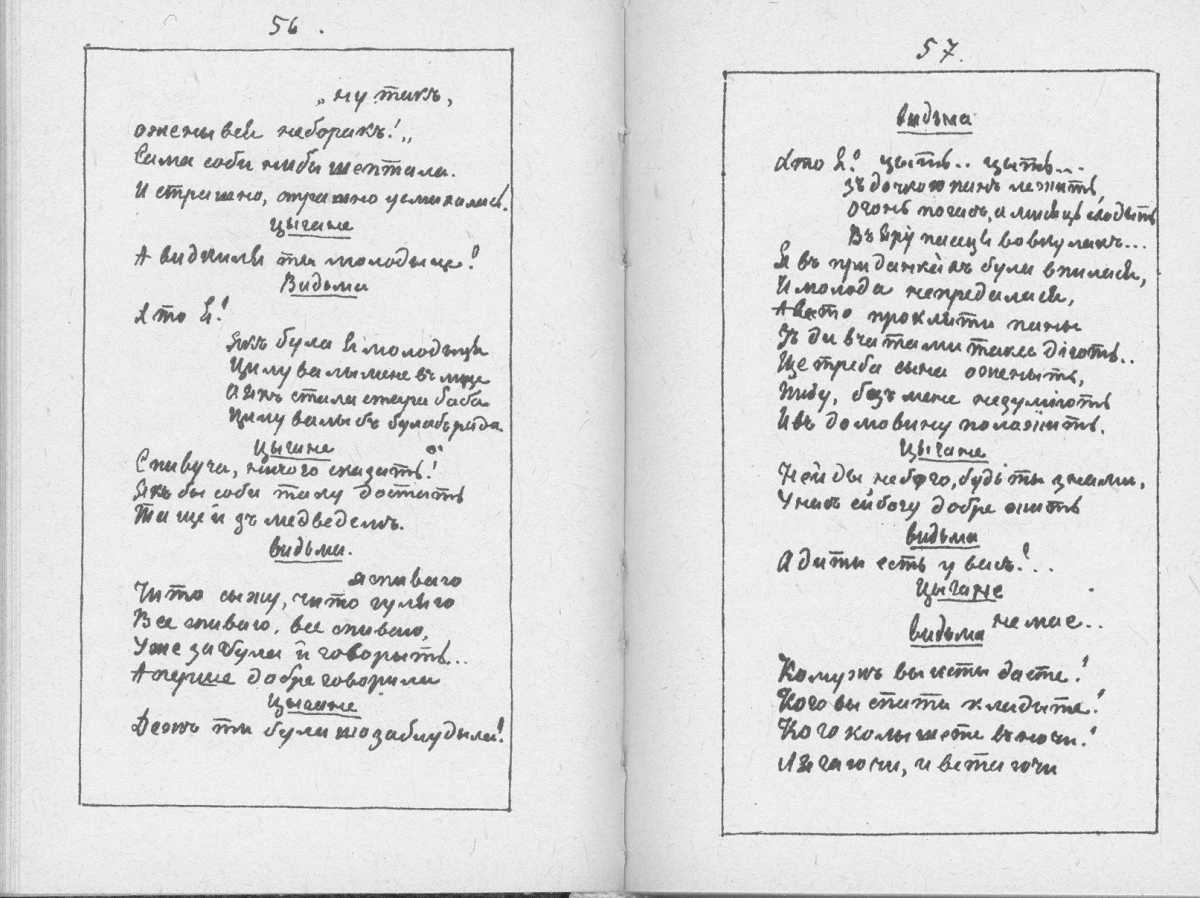 56.
„ну такъ,
оженывсй неборакъ!„
Сама соби ниби шептала.
И страшно, страшно усмихалась.
Цыгане
А видкиля ты молодыце!
Видьма
Хто Я!
Якъ була Я молодыця
Цилувалы мене въ лыце
А Якъ стала стара баба
Цилувалыбъ булабъ рада
Цыгане
Спивуча, ничого сказать!
Якъ бы соби таку достать
Та ще й зъ медведемъ.
видьма.
Я спиваю
Чи то сыжу, чи то гуляю
Все спиваю, все спиваю,
Уже забула й говорыть...
А перше добре говорила
Цыгане
Дежъ ты була шо заблудыла!
57.
видьма
Хто Я! цыть.. цыть...
зъ дочкою панъ лежыть,
огонь погасъ, а мисяць сходыть
Въ Яру пасця вовкулакъ...
Я въ приданкахъ була впилася,
И молода непредалася,
А все то прокляти паны
Зъ дивчатами таке діють..
Ще треба сына оженыть,
Пиду, безъ мене незуміють
И въ домовину положить.
Цыгане
Нейды небого, будь ты знами,
У насъ ейбогу добре жить
видьма
А диты есть у васъ!..
Цыгане
немае..
видьма
Кому жъ вы исты дасте!
Кого вы спаты кладыте!
Кого колышете въночи!
Лягаючи, и встаючи